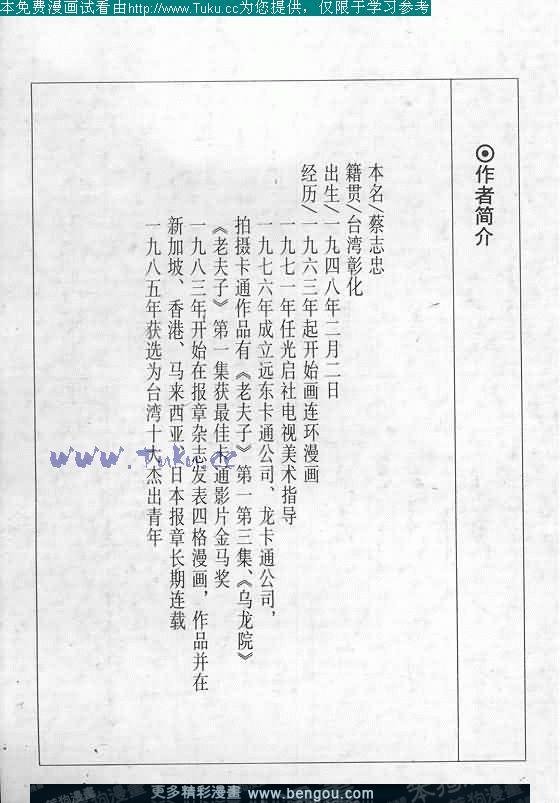 本免费漫画试看由http://www.Tuku.cc为您提供，仅限于学习参考
⊙作者简介
本名/蔡志忠
籍贯/台湾彰化
出生/一九四八年二月二日
经历/一九六三年起开始画连环漫画
一九七一年任光启社电视美术指导
一九七六年成立远东卡通公司、龙卡通公司，
拍摄卡通作品有《老夫子》第一第三集、《乌龙院》
《老夫子》第一集获最佳卡通影片金马奖
一九八三年开始在报章杂志发表四格漫画，作品并在
新加坡、香港、马来西亚、日本报章长期连载
一九八五年获选为台湾十大杰出青年
www.Tuku.cc
更多精彩漫畫 www.bengou.com